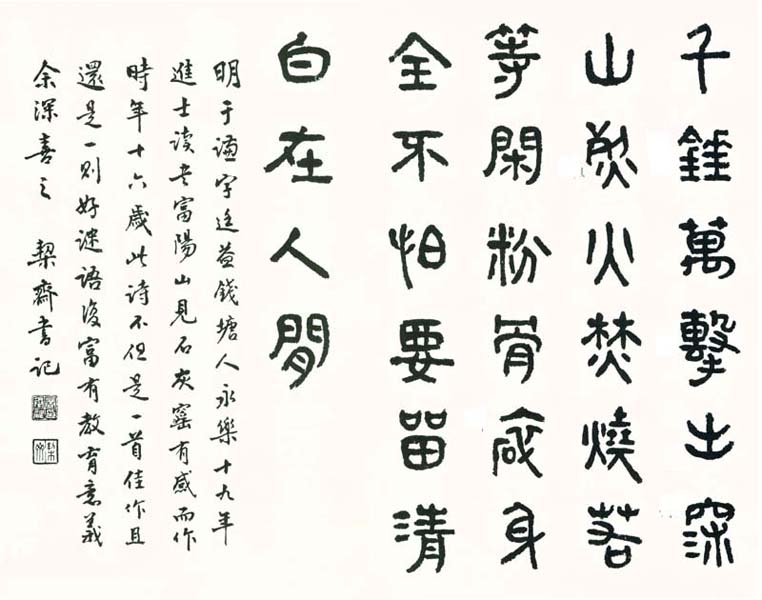 千錘萬擊出深
山烈火焚燒若
等閑粉骨碎身
全不怕要留清
白在人閒
明于謙字廷益錢塘人永樂十九年
進士讀書富陽山見石灰窰有感而作
時年十六歲此诗不但是一首佳作且
還是一則好謎語復富有教育意義
余深喜之 栔齋書記